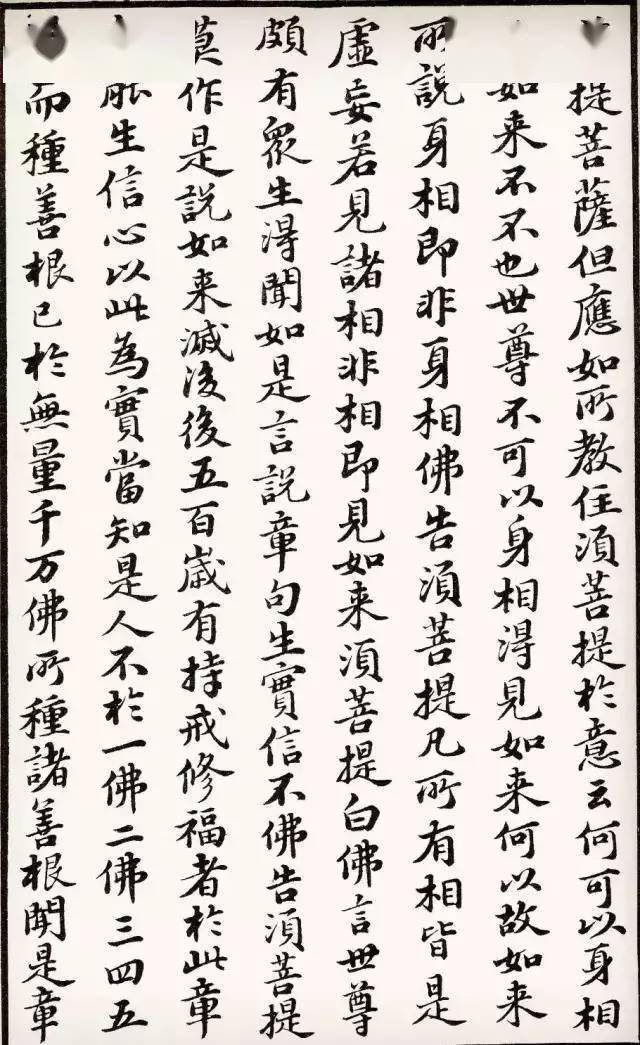 提菩薩但應如所教住須菩提於意云何可以身相
如来不不也世尊不可以身相得見如来何以故如来
所說身相即非身相佛告須菩提凡所有相皆是
虛妄若見諸相非相即見如来須菩提白佛言世尊
頗有眾生得聞如是言說章句生實信不佛告須菩提
莫作是說如来滅後後五百歲有持戒修福者於此章
生信心以此為實當知是人不於一佛二佛三四五
而種善根已於無量千万佛所種諸善根聞是章